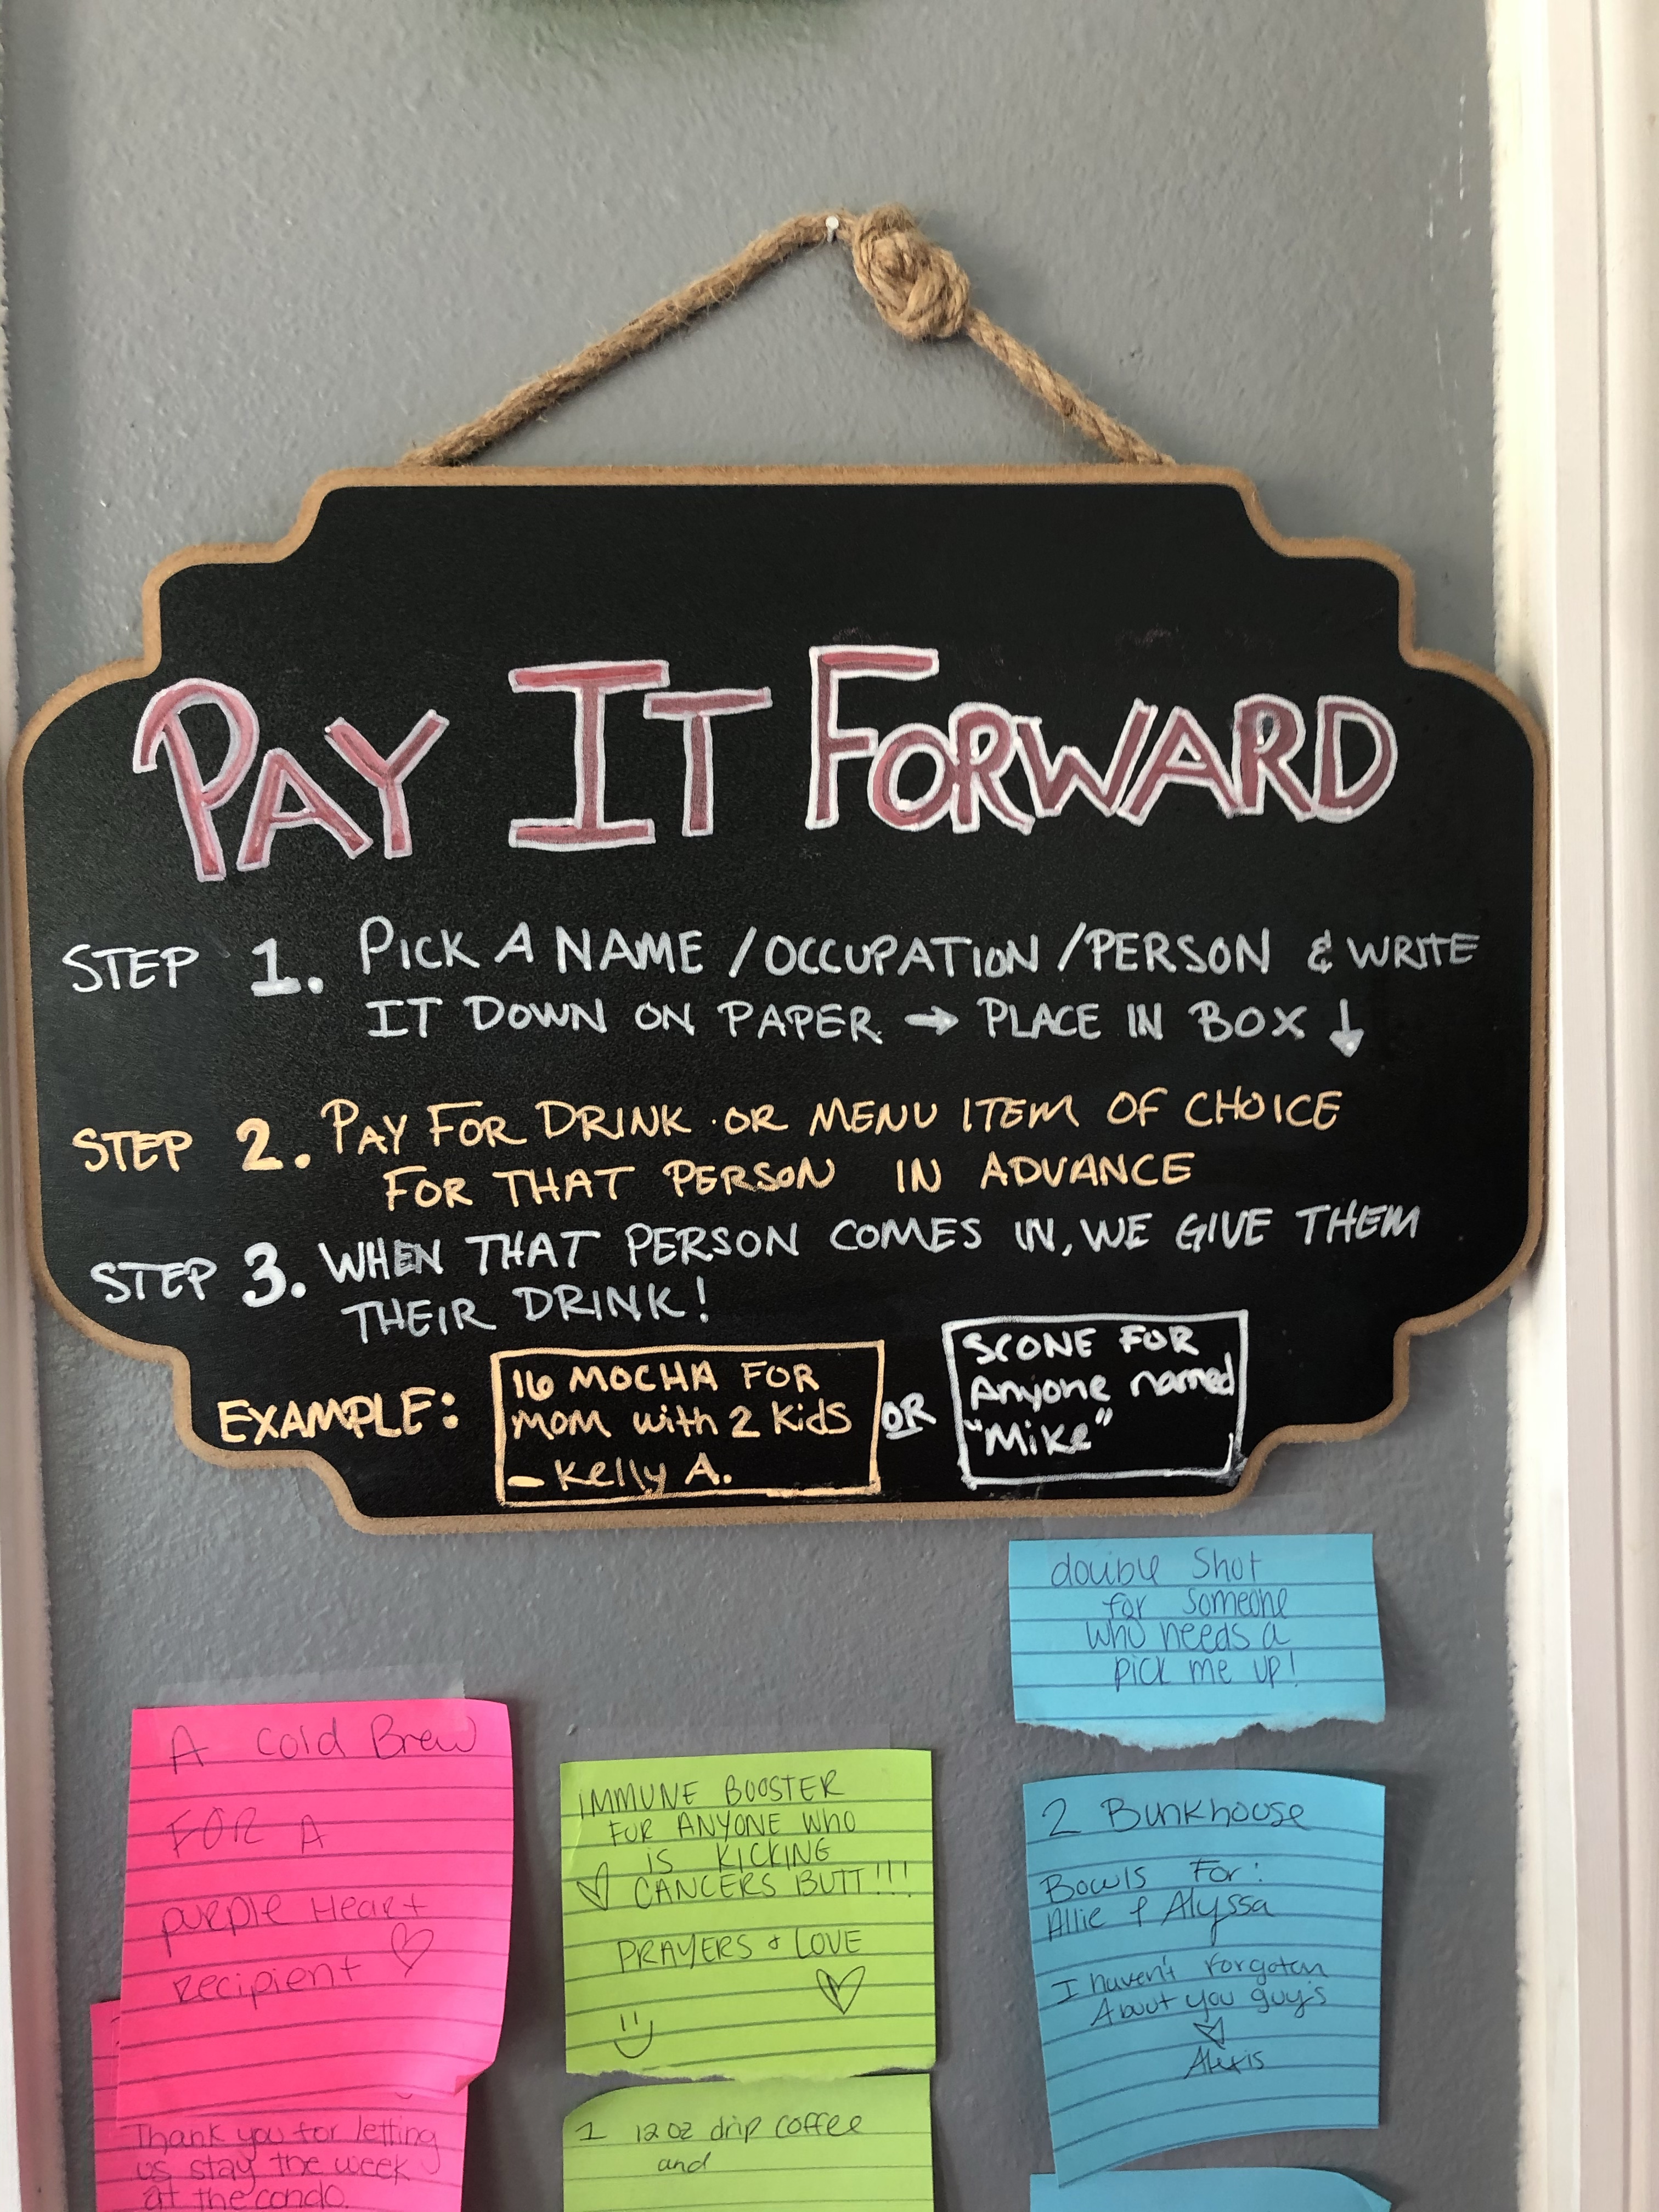 PAY IT FORWARD
STEP 1. PICK A NAME / OCCUPATION / PERSON & WRITE
IT DOWN ON PAPER → PLACE IN BOX ↓
STEP 2. PAY FOR DRINK OR MENU ITEM OF CHOICE
FOR THAT PERSON IN ADVANCE
STEP 3. WHEN THAT PERSON COMES IN, WE GIVE THEM
THEIR DRINK!
EXAMPLE:
16 MOCHA FOR
MOM with 2 Kids
- Kelly A.
OR
SCONE FOR
Anyone named
"Mike"
double Shot
for Someone
who needs a
pick me up!
A Cold Brew
FOR A
purple Heart
recipient ♡
IMMUNE BOOSTER
FOR ANYONE WHO
IS KICKING
♡ CANCERS BUTT!!!
PRAYERS & LOVE
2 Bunkhouse
Bowls For:
Allie & Alyssa
I haven't forgotten
About you guy's
Alexis
Thank you for letting
us stay the week
at the condo.
1 12 oz drip coffee
and